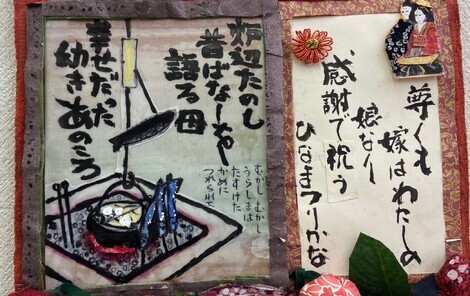 炉辺たのし
昔ばなしや
語る母
幸せだった
幼き
あのころ
むかしむかし
うらしまは
たすけた
かめに
つれられて
尊くも
嫁はわたしの
娘なり
感謝で祝う
ひなまつりかな